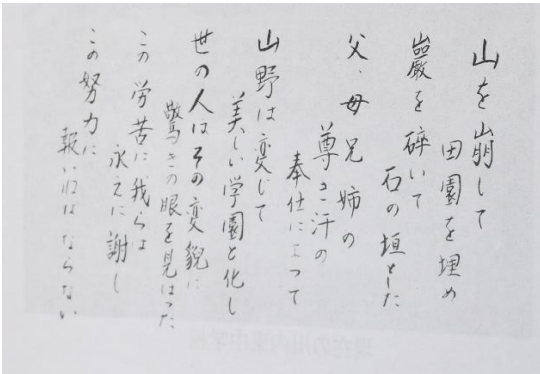 山を崩して
田園を埋め
巖を碎いて
石の垣とした
父、母兄姉の
尊き汗の
奉仕によつて
山野は変じて
美しい学園と化し
世の人はその変貌に
驚きの眼を見はつた
この労苦に我らは
永えに謝し
この努力に
報いねばならない